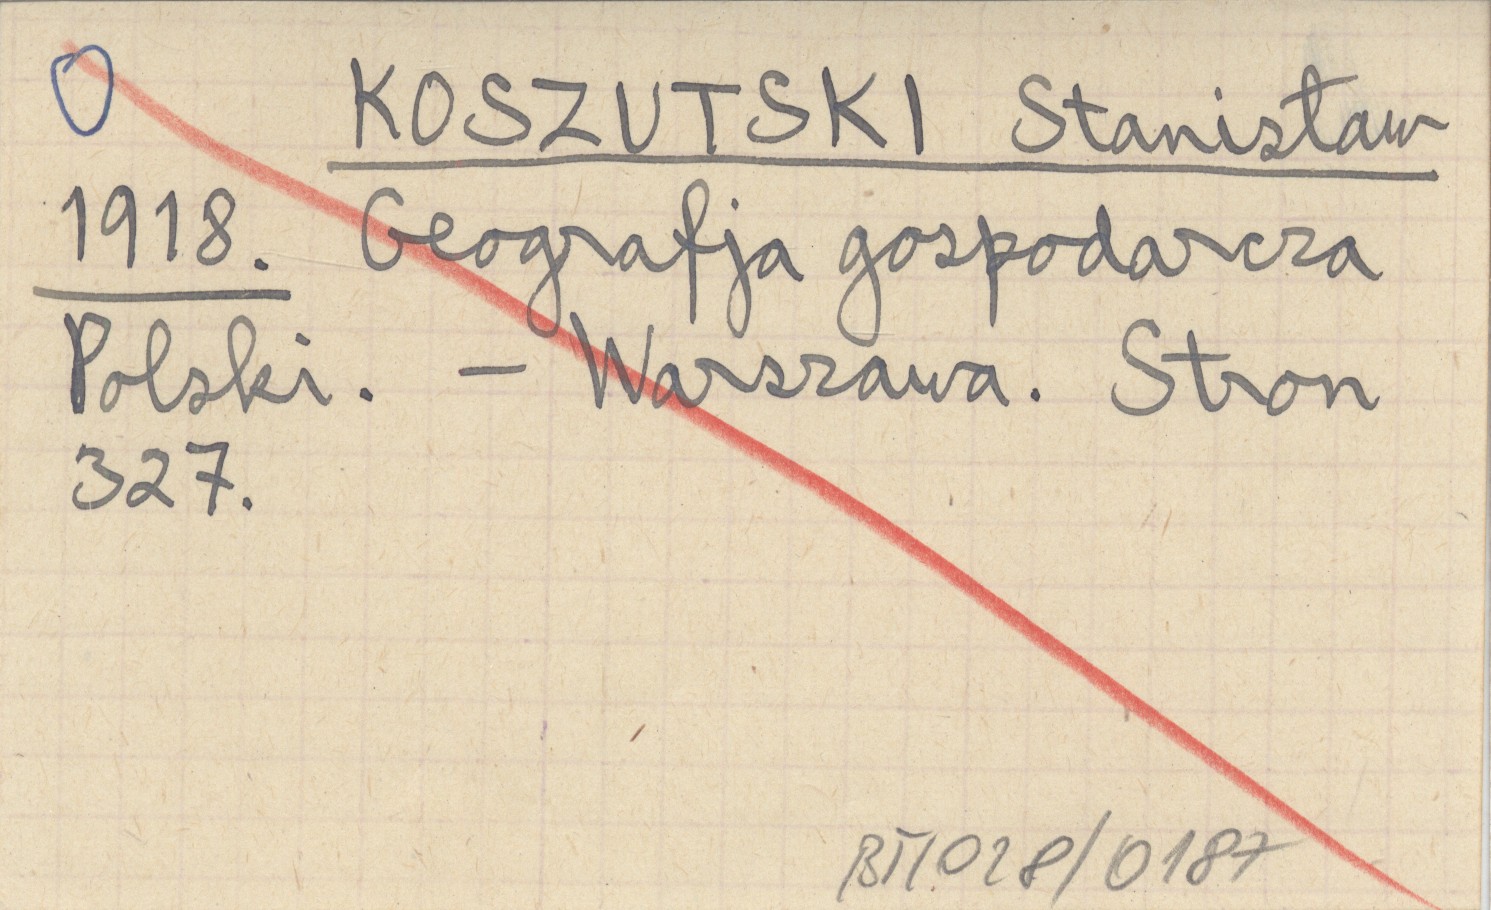 O KOSZUTSKI Stanisław
1918. Geografja gospodarcza
Polski. – Warszawa. Stron
327.
BTI.028/0187